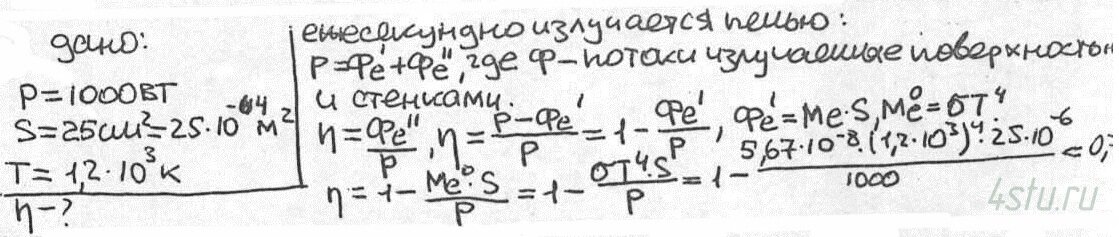 дано:
P=1000Вт
S=25см²=25·10⁻⁴м²
T=1,2·10³к
η-?
ежесекундно излучается печью:
P=Фе'+Фе'', где Ф-потоки излучаемые поверхностью
и стенками.
η=Фе''/P, η=(P-Фе')/P=1-Фе'/P, Фе'=Ме·S, Ме⁰=σT⁴.
η=1-Ме⁰·S/P=1-σT⁴·S/P=1-5,67·10⁻⁸·(1,2·10³)⁴·25·10⁻⁶/1000=0,
4stu.ru